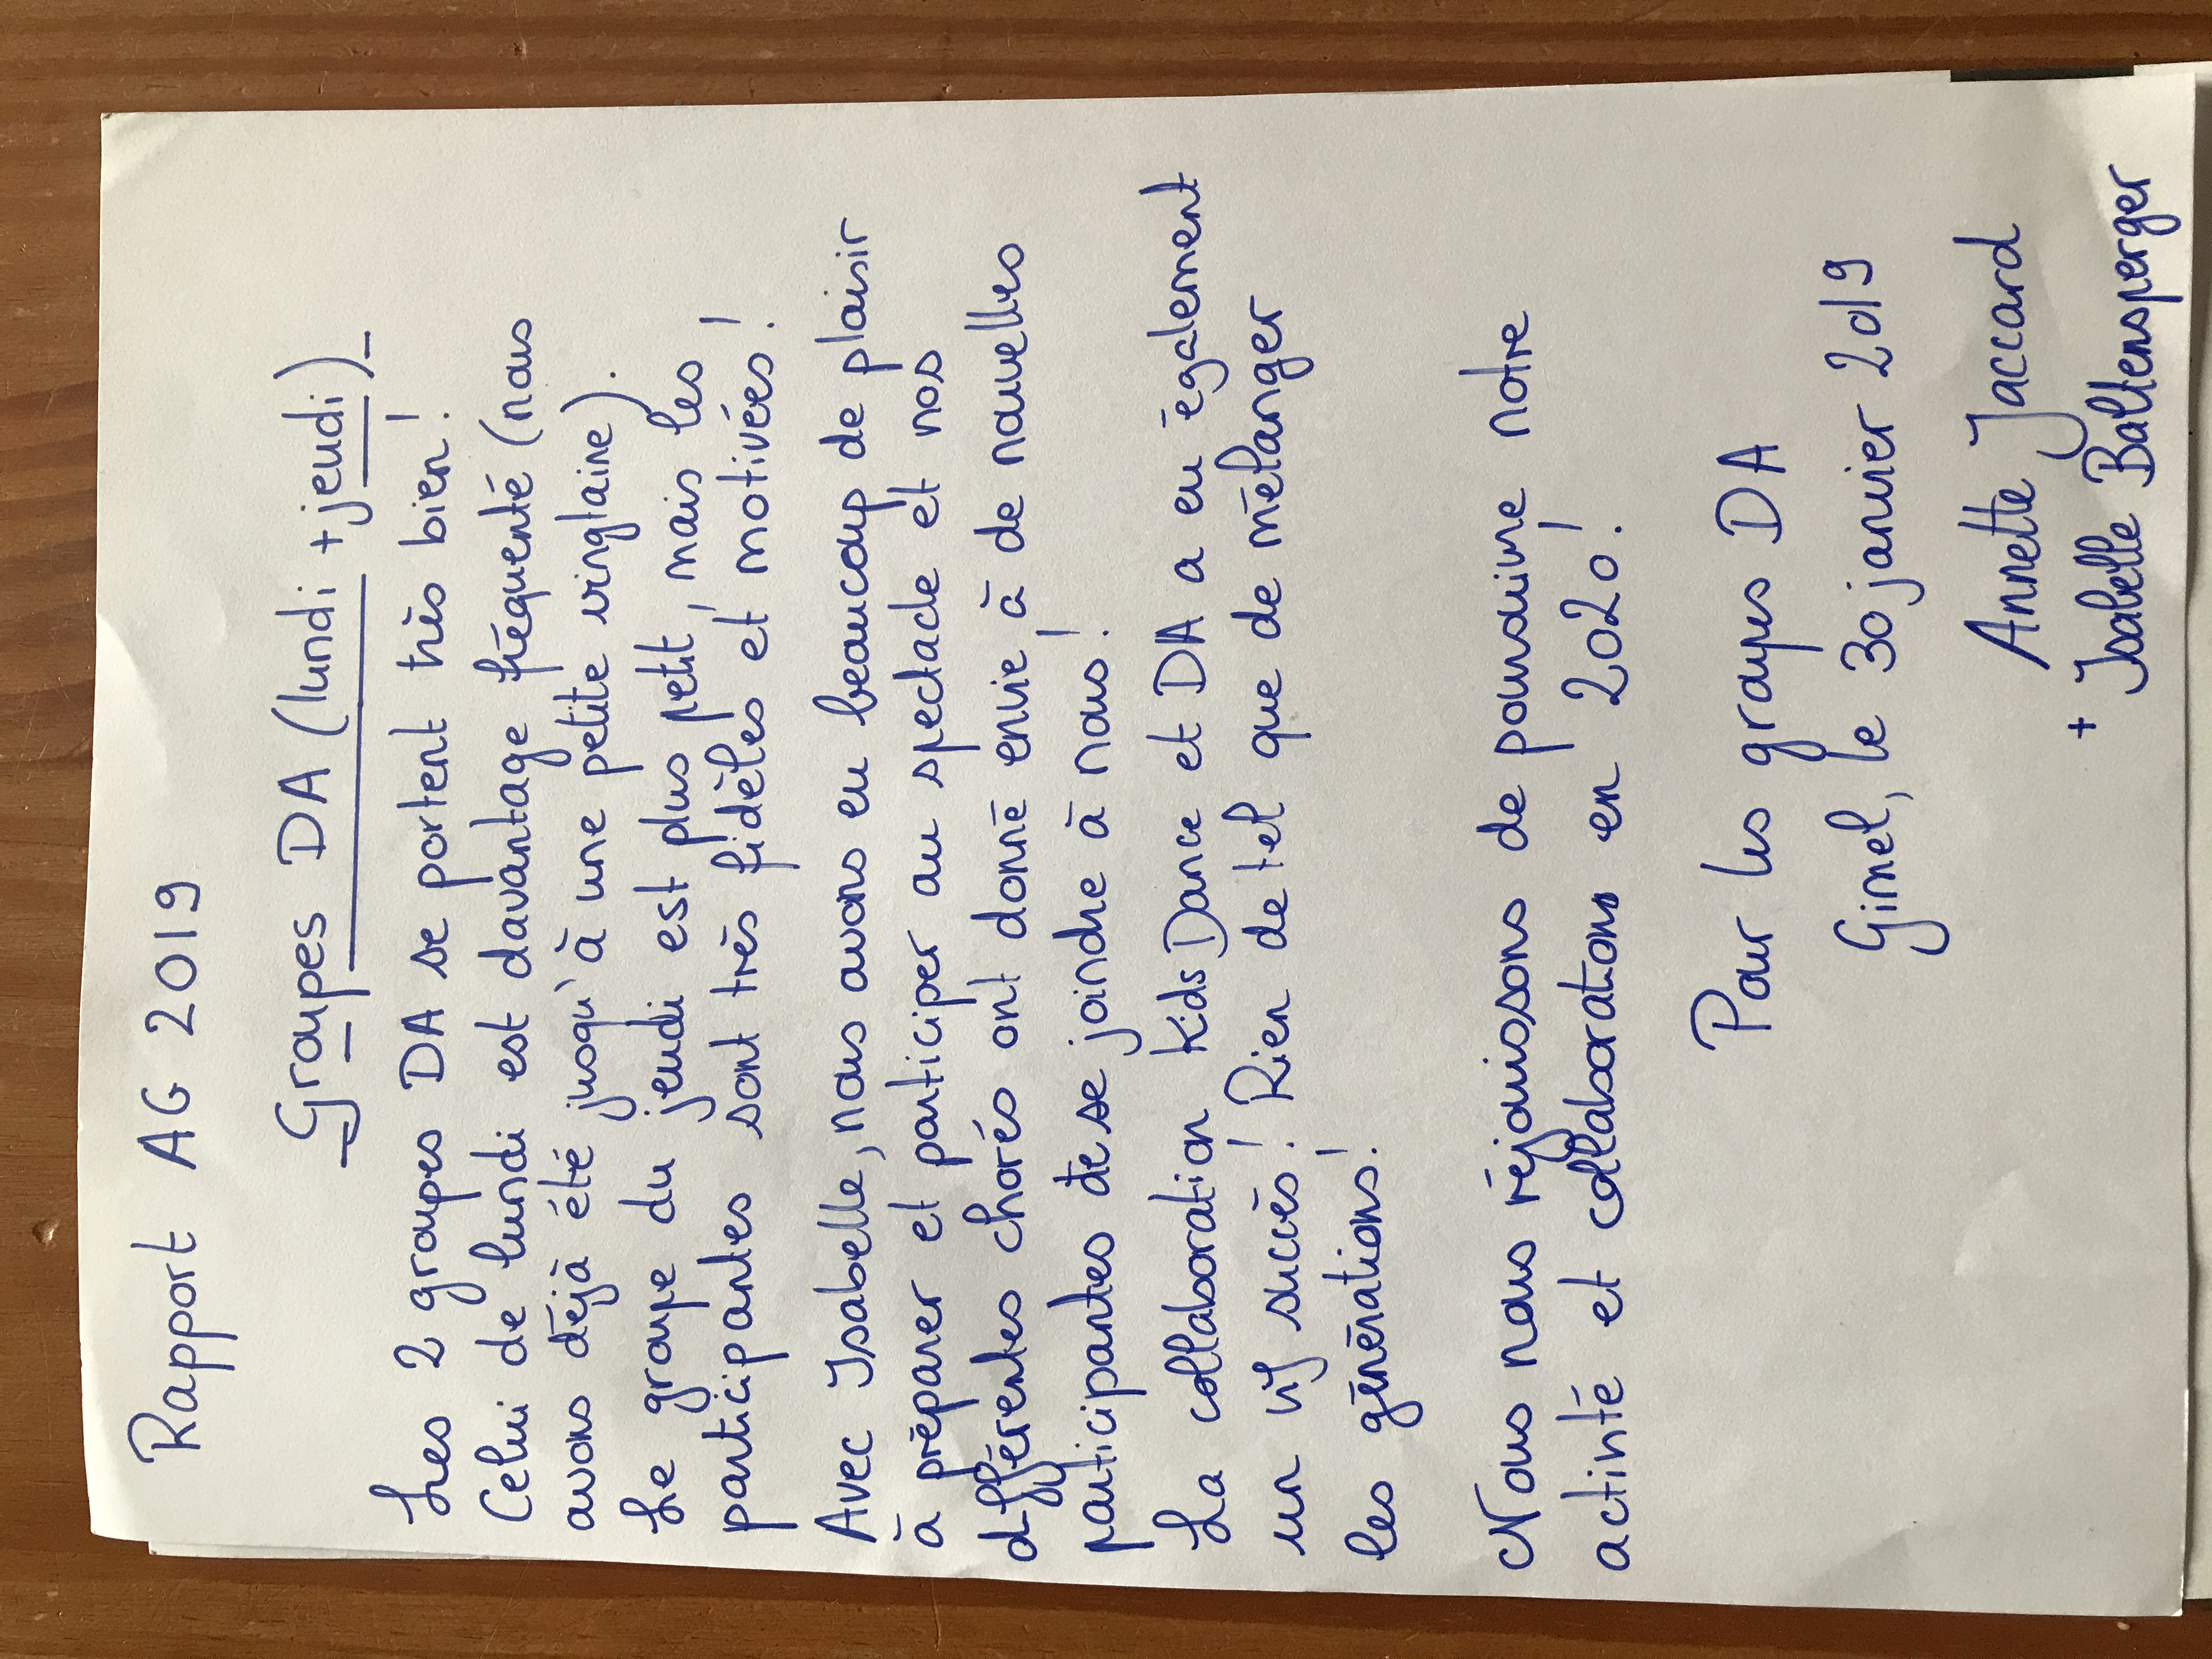 Rapport AG 2019
Groupes DA (lundi + jeudi)
Les 2 groupes DA se portent très bien !
Celui de lundi est davantage fréquenté (nous
avons déjà été jusqu'à une petite vingtaine).
Le groupe du jeudi est plus petit, mais les
participantes sont très fidèles et motivées !
Avec Isabelle, nous avons eu beaucoup de plaisir
à préparer et participer au spectacle et nos
différentes chorés ont donné envie à de nouvelles
participantes de se joindre à nous !
La collaboration kids Dance et DA a eu également
un vif succès ! Rien de tel que de mélanger
les générations !
Nous nous réjouissons de poursuivre notre
activité et collaborations en 2020 !
Pour les groupes DA
Gimel, le 30 janvier 2019
Annette Jaccard
+ Isabelle Baltensperger